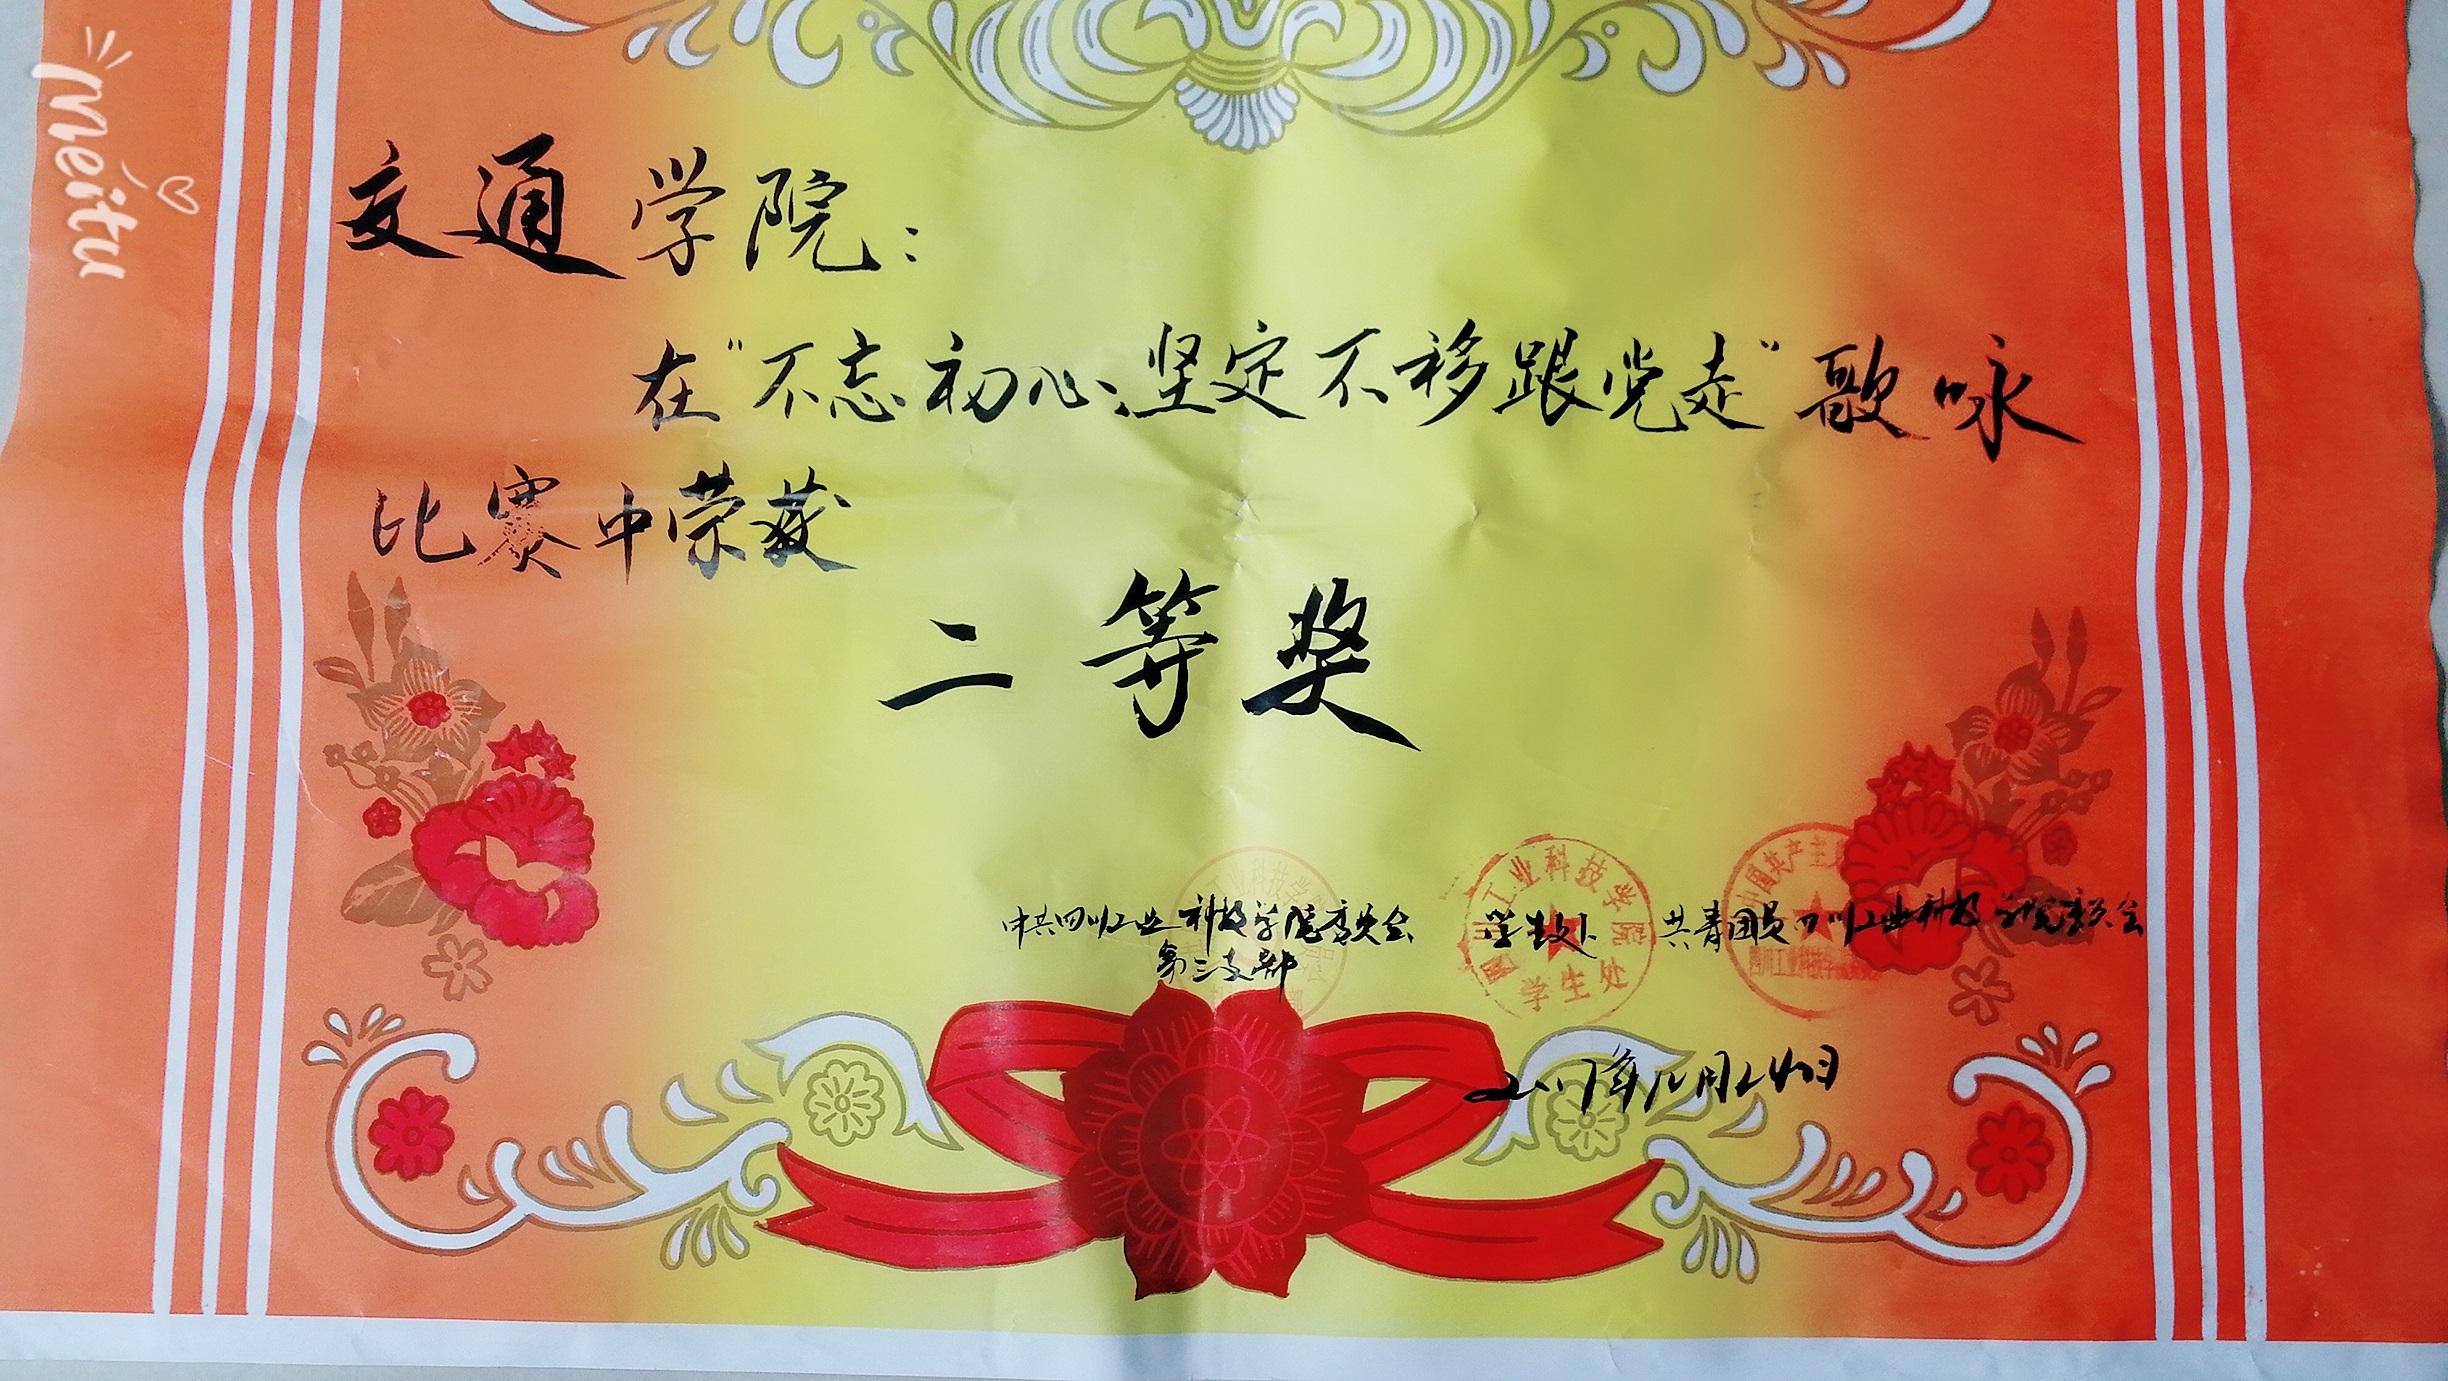 meitu
交通学院：
在"不忘初心、坚定不移跟党走"歌咏
比赛中荣获
二等奖
中共四川工业科技学院委员会
第三支部
学生处
共青团员四川工业科技学院委员会
工业科技学院
学生处
中国共产主
四川工业科技学
2017年12月24日